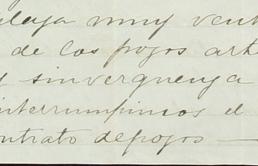 muy vent
de los pozos arte
y sinverguenza
interrumpimos el
ontrato depozos —